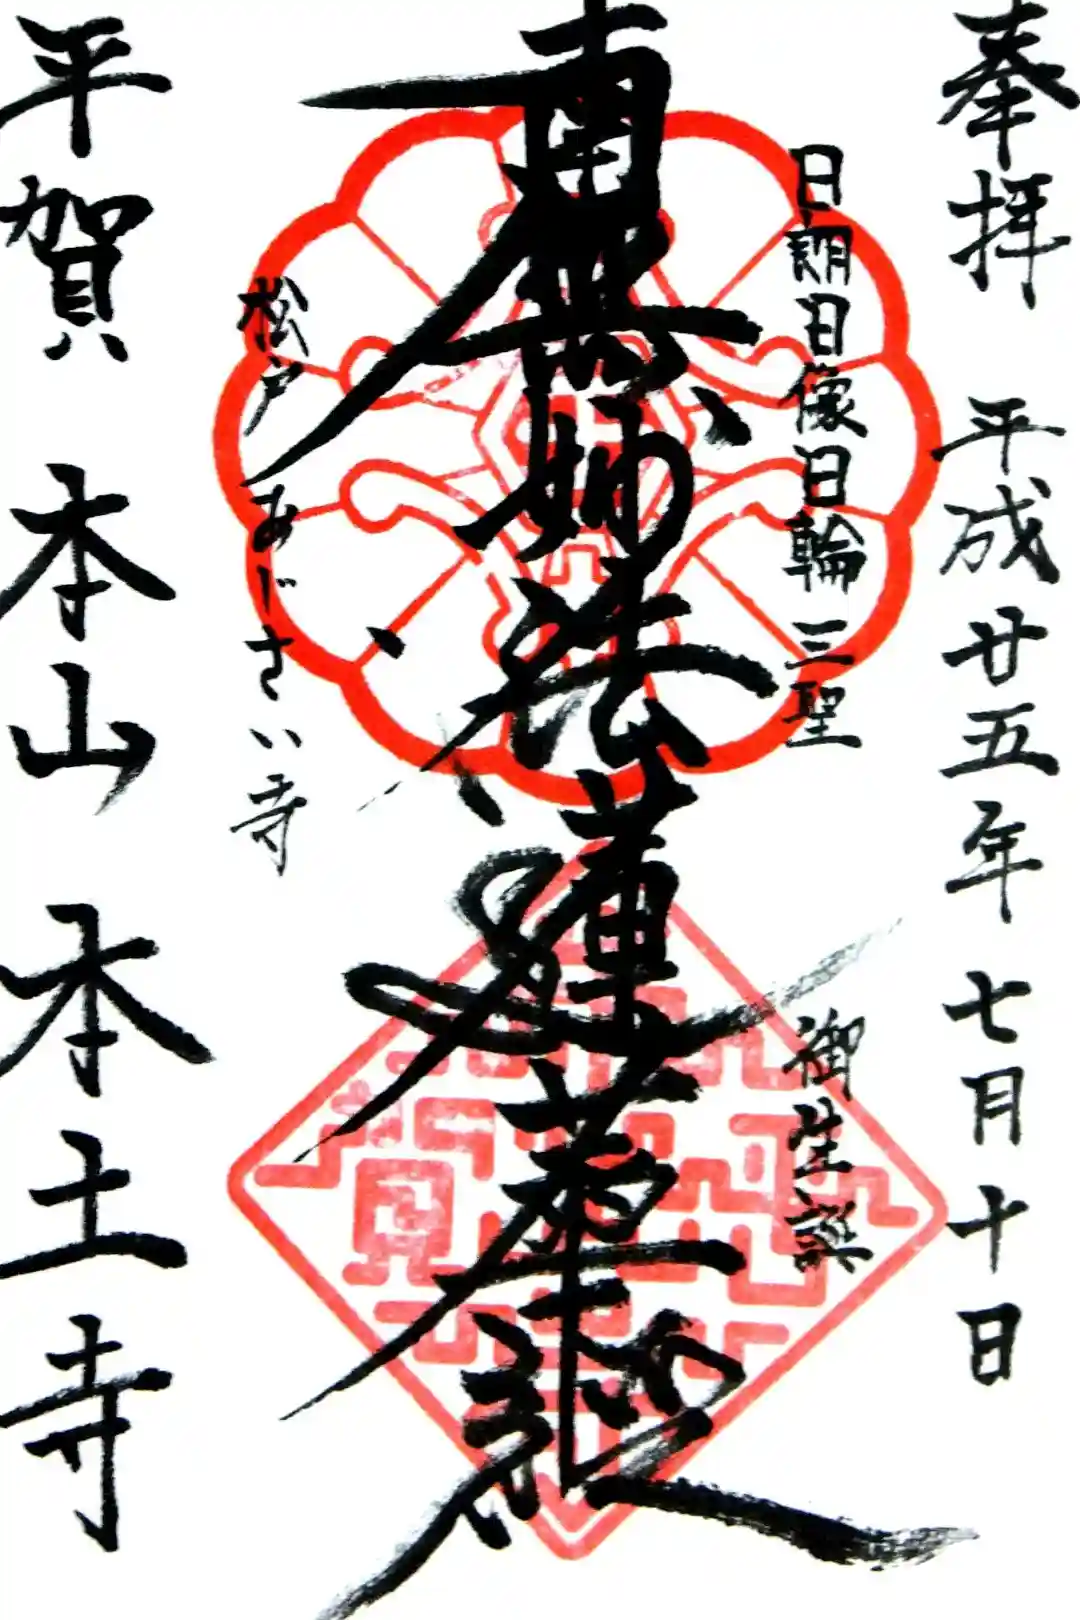 奉拝 平成廿五年七月十日
日朗日像日輪三聖 御生誕
南無妙法蓮華経
松戸あじさい寺
平賀 本山 本土寺